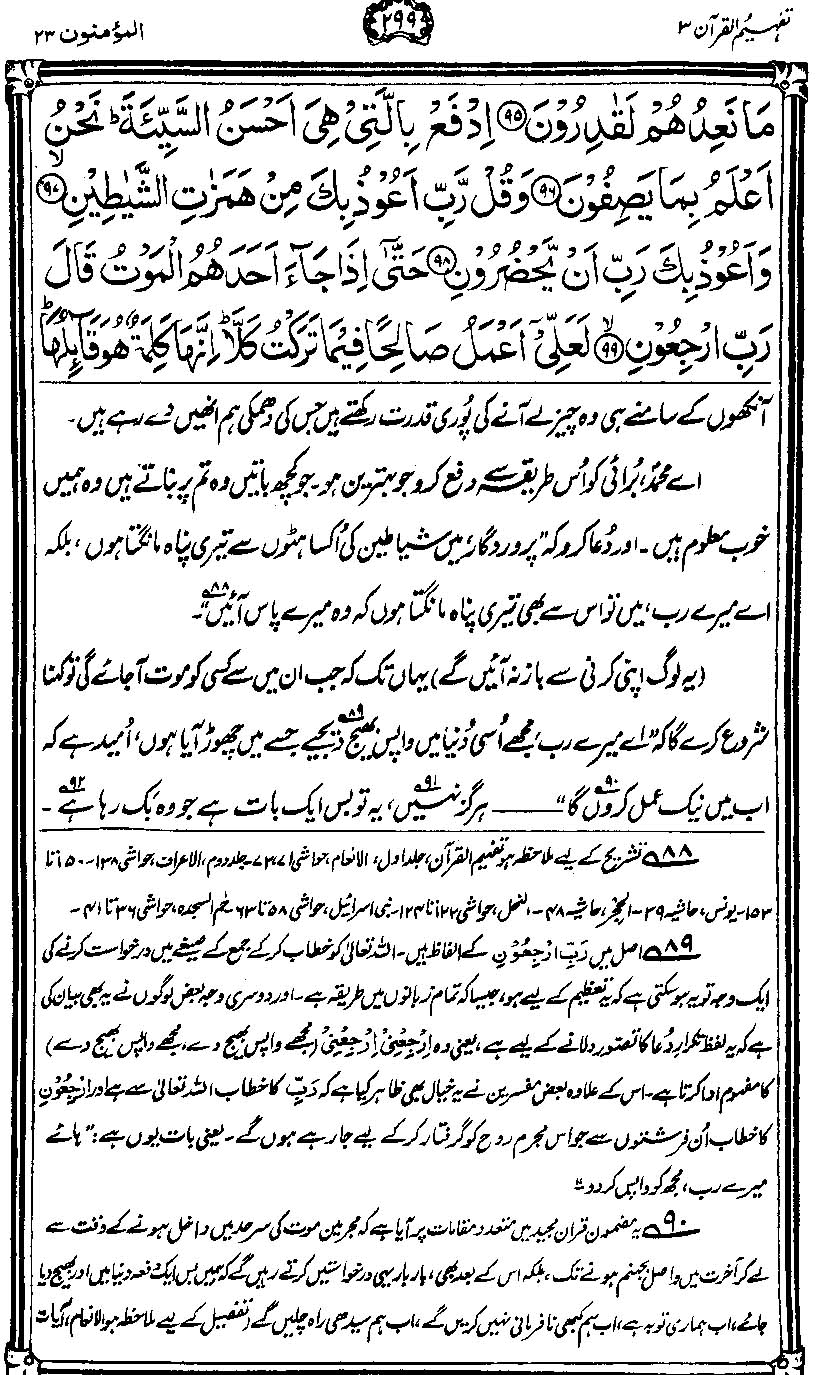 تفہیم القرآن ۳
۲۹۹
المؤمنون ۲۳
مَا نَعِدُهُمْ لَقٰدِرُوْنَ ﴿۹۵﴾ اِدْفَعْ بِالَّتِيْ هِيَ اَحْسَنُ السَّيِّئَةَ ؕ نَحْنُ
اَعْلَمُ بِمَا يَصِفُوْنَ ﴿۹۶﴾ وَقُلْ رَّبِّ اَعُوْذُ بِكَ مِنْ هَمَزٰتِ الشَّيٰطِيْنِ ﴿ۙ۹۷﴾
وَاَعُوْذُ بِكَ رَبِّ اَنْ يَّحْضُرُوْنِ ﴿۹۸﴾ حَتّٰۤى اِذَا جَآءَ اَحَدَهُمُ الْمَوْتُ قَالَ
رَبِّ ارْجِعُوْنِ ﴿ۙ۹۹﴾ لَعَلِّيْۤ اَعْمَلُ صَالِحًا فِيْمَا تَرَكْتُ كَلَّا ؕ اِنَّهَا كَلِمَةٌ هُوَ قَآئِلُهَا ؕ
آنکھوں کے سامنے ہی وہ چیز لے آنے کی پُوری قدرت رکھتے ہیں جس کی دھمکی ہم انھیں دے رہے ہیں۔
اے محمدؐ، بُرائی کو اُس طریقہ سے دفع کرو جو بہترین ہو۔ جو کچھ باتیں وہ تم پر بناتے ہیں وہ ہمیں
خوب معلوم ہیں۔ اور دُعا کرو کہ "پروردگار، میں شیاطین کی اُکساہٹوں سے تیری پناہ مانگتا ہوں، بلکہ
اے میرے رب، میں تو اس سے بھی تیری پناہ مانگتا ہوں کہ وہ میرے پاس آئیں"۸۸۔
(یہ لوگ اپنی کرنی سے باز نہ آئیں گے) یہاں تک کہ جب ان میں سے کسی کو موت آجائے گی تو کہنا
شروع کرے گا کہ "اے میرے رب، مجھے اُسی دُنیا میں واپس بھیج۸۹ دیجیے جسے میں چھوڑ آیا ہوں، اُمید ہے کہ
اب میں نیک عمل کروں گا۹۰" ـــــ ہرگز نہیں۹۱، یہ تو بس ایک بات ہے جو وہ بک رہا ہے۹۲۔
۸۸ تشریح کے لیے ملاحظہ ہو تفہیم القرآن، جلد اول، الانعام، حواشی ۷۱، ۷۲۔ جلد دوم، الاعراف، حواشی ۱۳۸۔ ۱۵۰ تا
۱۵۳۔ یونس، حاشیہ ۳۹۔ الحجر، حاشیہ ۴۸۔ النحل، حواشی ۱۲۲ تا ۱۲۴۔ بنی اسرائیل، حواشی ۵۸ تا ۶۳۔ حٰم السجدہ، حواشی ۳۶ تا ۴۱۔
۸۹ اصل میں رَبِّ ارْجِعُوْنِ کے الفاظ ہیں۔ اللہ تعالیٰ کو خطاب کر کے جمع کے صیغے میں درخواست کرنے کی
ایک وجہ تو یہ ہو سکتی ہے کہ یہ تعظیم کے لیے ہو، جیسا کہ تمام زبانوں میں طریقہ ہے۔ اور دوسری وجہ بعض لوگوں نے یہ بھی بیان کی
ہے کہ یہ لفظ تکرارِ دُعا کا تصور دلانے کے لیے ہے، یعنی وہ اِرْجِعْنِیْ اِرْجِعْنِیْ (مجھے واپس بھیج دے، مجھے واپس بھیج دے)
کا مفہوم ادا کرتا ہے۔ اس کے علاوہ بعض مفسرین نے یہ خیال بھی ظاہر کیا ہے کہ رَبِّ کا خطاب اللہ تعالیٰ سے ہے اور ارْجِعُوْنِ
کا خطاب اُن فرشتوں سے جو اس مجرم روح کو گرفتار کر کے لیے جا رہے ہوں گے۔ یعنی بات یوں ہے: "ہائے
میرے رب، مجھ کو واپس کر دو"۔
۹۰ یہ مضمون قرآن مجید میں متعدد مقامات پر آیا ہے کہ مجرمین موت کی سرحد میں داخل ہونے کے وقت سے
لے کر آخرت میں واصل بجہنم ہونے تک، بلکہ اس کے بعد بھی، بار بار یہی درخواستیں کرتے رہیں گے کہ ہمیں بس ایک دفعہ دنیا میں اور بھیج دیا
جائے، اب ہماری توبہ ہے، اب ہم کبھی نافرمانی نہیں کریں گے، اب ہم سیدھی راہ چلیں گے (تفصیل کے لیے ملاحظہ ہو الانعام، آیات